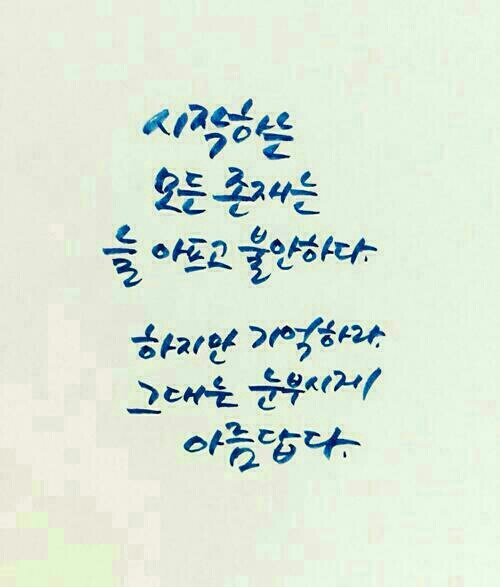 시작하는
모든 존재는
늘 아프고 불안하다.
하지만 기억하라.
그대는 눈부시게
아름답다.